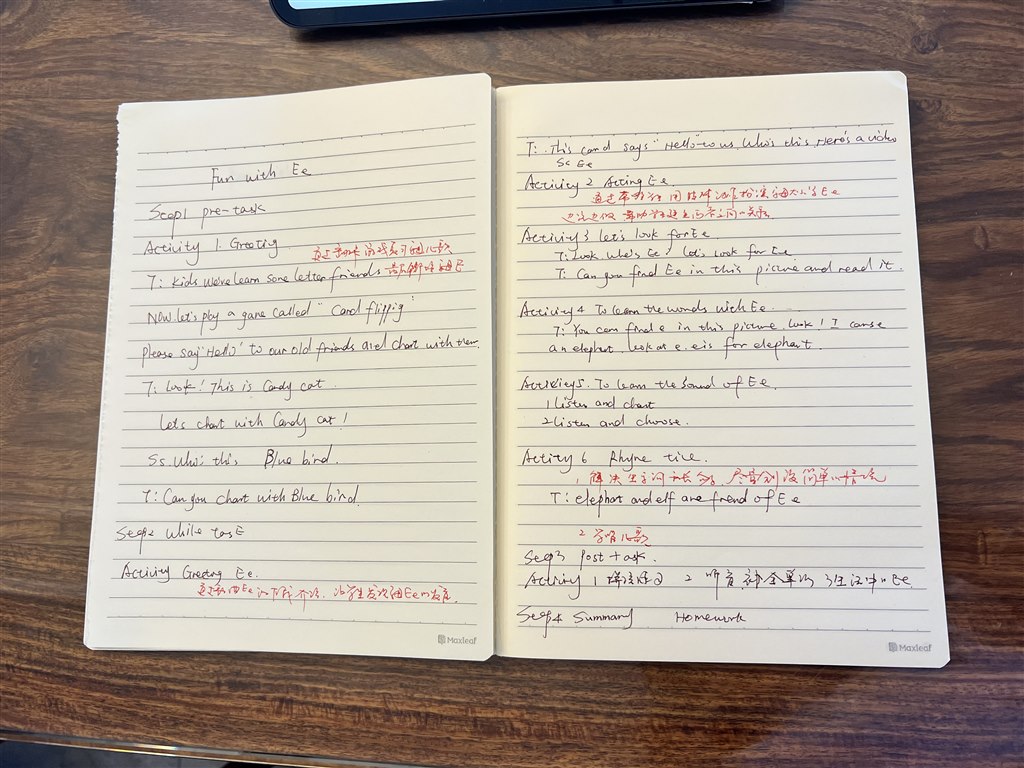 Fun with Ee
Scop1 pre-task
Activity 1. Greeting
通过 游戏复习 儿歌
T: Kids We've learn some letter friends
Now. let's play a game called "Card flippig"
please say "Hello" to our old friends and chart with them.
T: Look! This is Candy cat.
Let's chart with Candy cat!
Ss. Who: this Blue bird.
T: Can you chart with Blue bird
Scop2 while task
Activity Greeting Ee.
通过 Ee 让学生 Ee的发音.
Maxleaf
T: This card says "Hello" to us. Who's this. Here's a video
Sc Ee
Activity 2 Acting Ee.
通过 Ee
Activity 3 let's look for Ee
T: Look who's Ee? let's look for Ee
T: Can you find Ee in this picture and read it.
Activity 4 To learn the words with Ee.
T: You can find e in this picture. Look! I can see
an elephant. look at e. e is for elephant.
Activity 5. To learn the sound of Ee.
1 listen and chart
2 listen and choose.
Activity 6 Rhyme time.
1. 解决生词 简单
T: elephant and elf are friend of Ee
2 学唱儿歌
Scop3 post task.
Activity 1 2 听音 补全单词 3 生活中的Ee
Scop4 Summary Homework
Maxleaf